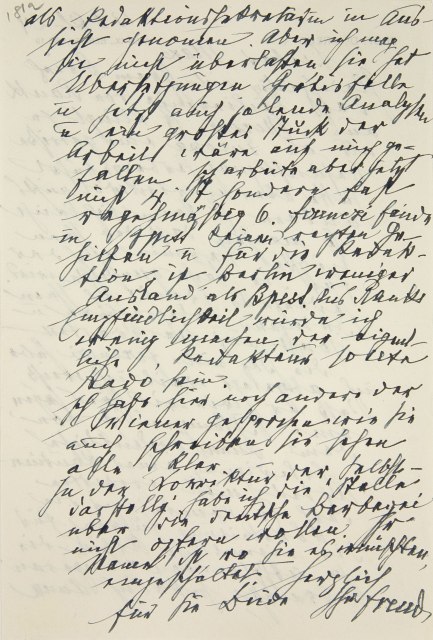 als Redaktionssekretärin in Aus-
sicht genommen Aber ich mag
sie nicht überlasten sie hat
Übersetzungen
u jetzt auch zalende Analysen
u ein großes Stück der
Arbeit wäre auf mich ge-
fallen. Ich arbeite aber jetzt
nicht 4 St sondern fast
regelmäßig 6. Ferenczi fände
in keinen rechten Ge-
hilfen u für die Redak-
tion ist Berlin weniger
Ausland als Bpest. Aus Ranks
Empfindlichkeit würde ich
wenig machen der eigent-
liche Redakteur sollte
Radó sein.
Ich habe hier noch andere der
Wiener gesprochen wie sie
auch schreiben sie sehen
alle klar.
In der Korrektur der Selbst-
darstellg habe ich die Stelle
über die deutsche Barbarei
nicht opfern wollen. Ihr
Name ist wo Sie es wünschten,
eingeschaltet.
Herzlich
für Sie Beide Ihr Freud